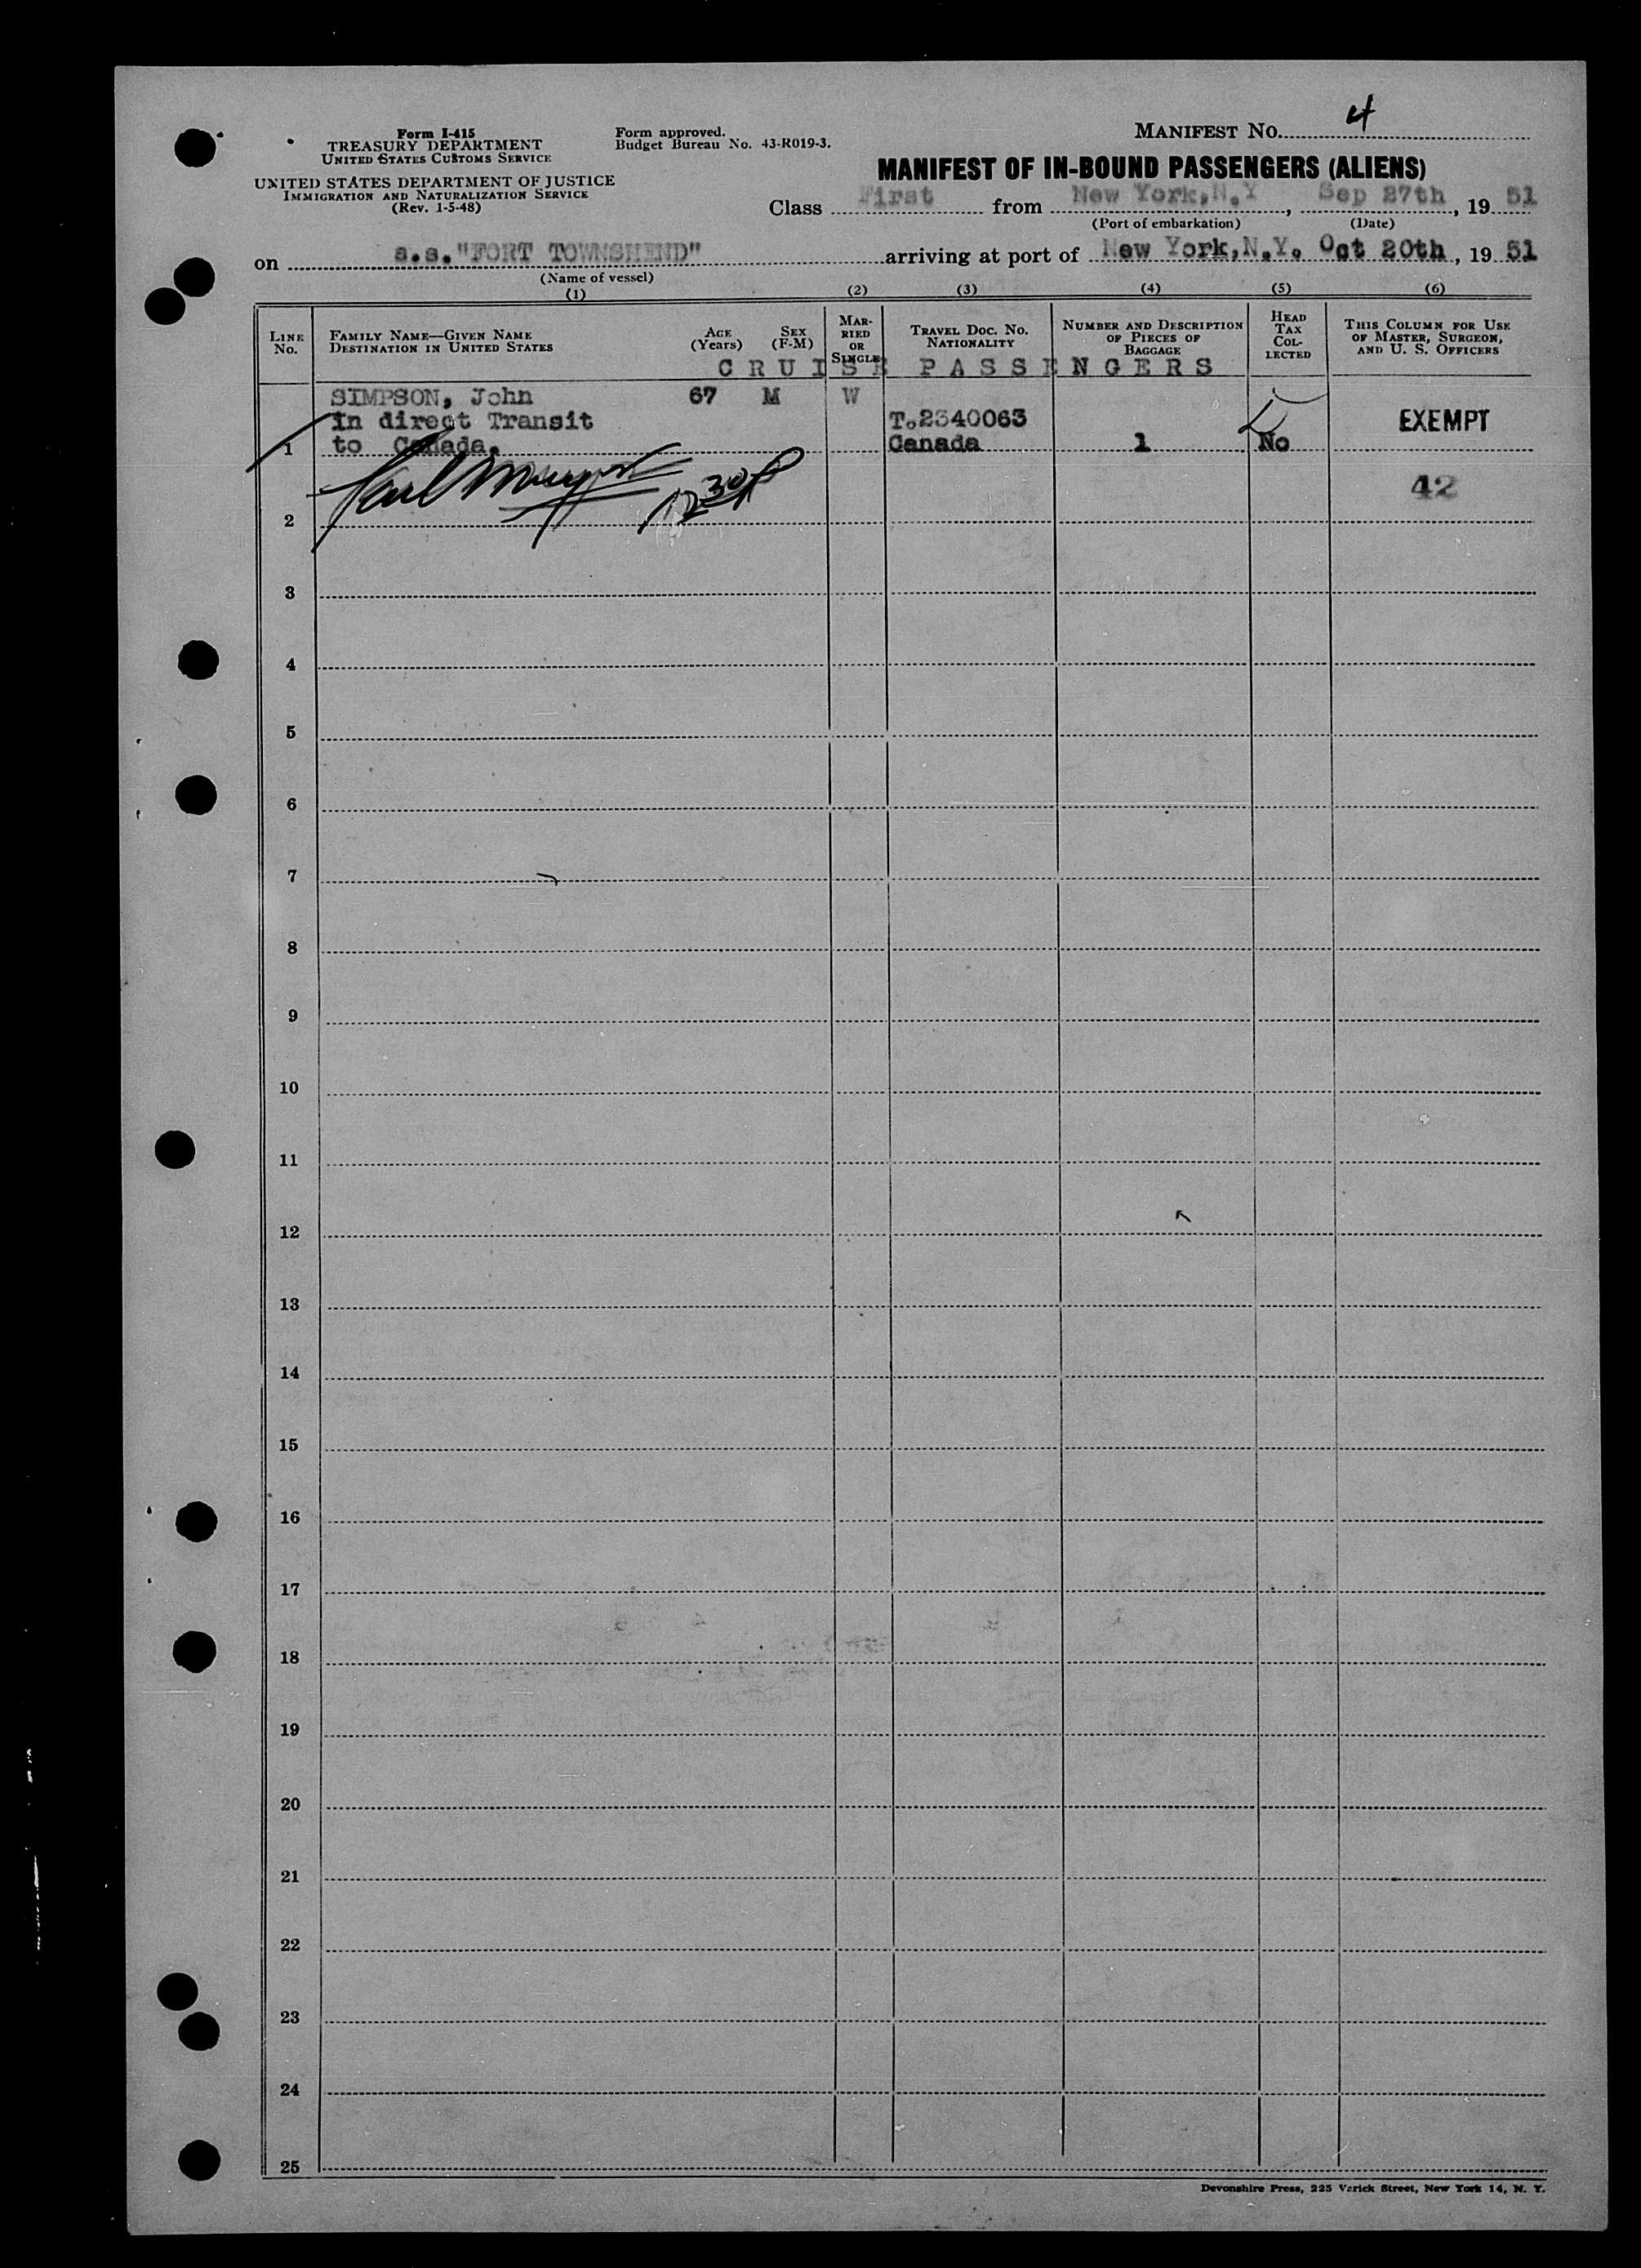 Form I-415
TREASURY DEPARTMENT
UNITED STATES CUSTOMS SERVICE
UNITED STATES DEPARTMENT OF JUSTICE
IMMIGRATION AND NATURALIZATION SERVICE
(Rev. 1-5-48)
Form approved.
Budget Bureau No. 43-R019-3.
MANIFEST NO. 4
MANIFEST OF IN-BOUND PASSENGERS (ALIENS)
Class First from New York,N.Y, Sep 27th, 19 51
(Port of embarkation) (Date)
on s.s."FORT TOWNSHEND" arriving at port of New York,N.Y. Oct 20th, 19 51
(Name of vessel)
(1) (2) (3) (4) (5) (6)
LINE NO.
FAMILY NAME—GIVEN NAME
DESTINATION IN UNITED STATES
AGE (Years)
SEX (F-M)
MARRIED OR SINGLE
TRAVEL DOC. NO.
NATIONALITY
NUMBER AND DESCRIPTION
OF PIECES OF
BAGGAGE
HEAD
TAX
COL-
LECTED
THIS COLUMN FOR USE
OF MASTER, SURGEON,
AND U. S. OFFICERS
CRUISE PASSENGERS
SIMPSON, John 67 M W
In direct Transit T.2340063 EXEMPT
1 to Canada. Canada 1 No
42
12 30 P
2
3
4
5
6
7
8
9
10
11
12
13
14
15
16
17
18
19
20
21
22
23
24
25
Devonshire Press, 225 Varick Street, New York 14, N. Y.